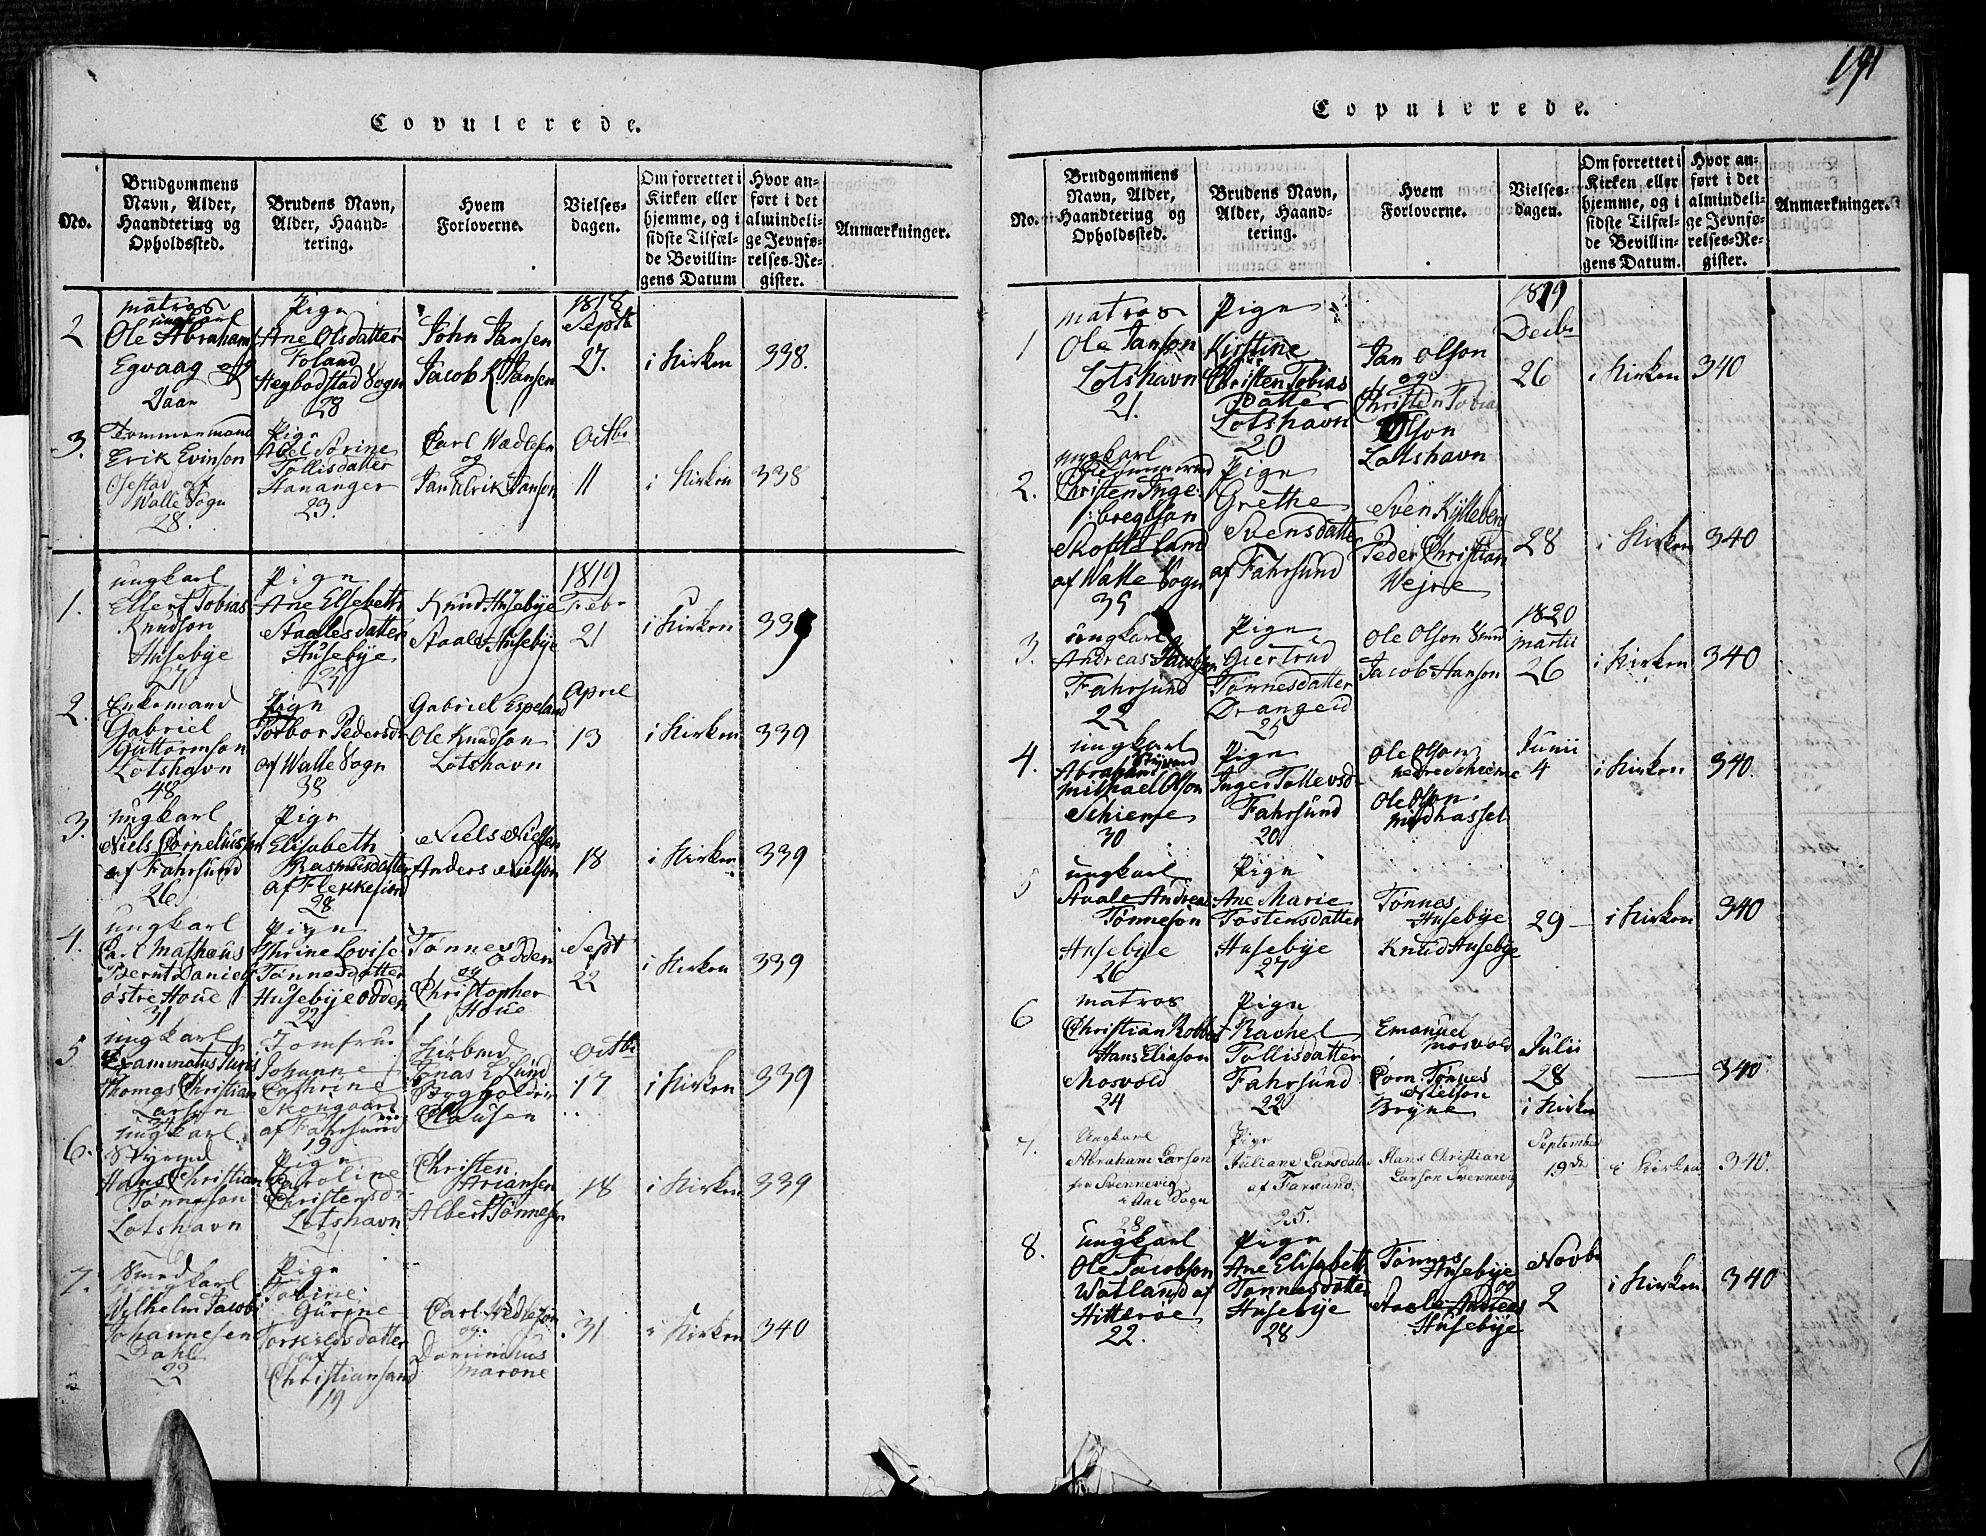 Copulerede.
No.
Brudgommens Navn, Alder, Haandtering og Opholdssted.
Brudens Navn, Alder, Haandtering.
Hvem Forloverne.
Vielsesdagen.
Om forrettet i Kirken eller hjemme, og i sidste Tilfælde Bevillingens Datum
Hvor anført i det almindelige Jevnførelses-Register.
Anmærkninger.
2
matros
ungkarl
Ole Abraham
Egvaag
Pige
Ane Olsdatter
Foland
Hegbostad Sogn
28
John Jansen
Jacob K Jansen
1818
Septb
27.
i Kirken
338.
3.
Tømmermand
Erik Evinson
af
Walle Sogn
28.
Pige
Abel Sørine
Tollisdatter
Hananger
23.
Carl Wedlesen
og
Jan Ulrik Janson
Octbr
11
i Kirken
338
1.
ungkarl
Ellert Tobias
Knudson
Husebye
27
Pige
Ane Elsebeth
Staalesdatter
Husebye
Knud Husebye
Staale Husebye
1819
Febr
21
i Kirken
339
2.
Enkemand
Gabriel
Guttormson
Lotshavn
48
Pige
Torbor Pedersd.
af Walle Sogn
38
Gabriel Espeland
Ole Knudson
Lotshavn
April
13
i Kirken
339
3.
ungkarl
Niels Cornelius
af Fahrsund
26
Pige
Elisabeth
Rasmusdatter
af Flekkesiord
28
Niels Nielsen
Anders Nielson
18
i Kirken
339
4.
ungkarl
Carl Matheus
Bernt Daniels
østre Houe
31
Pige
Thrine Lovise
Tønnesdatter
Husebye odden
22
Tønnes
odden
og
Christopher
Houe
Sept
22
i Kirken
339
5
ungkarl
Examinatus Juris
Thomas Christian
Larsen
Jomfrue
Johanne
Cathrine
Skongaard
af Fahrsund
19
Jonas E Lund
Clausen
Octbr
17
i Kirken
339
6.
ungkarl
Styrmd
Hans Christian
Tønneson
Lotshavn
Pige
Caroline
Christensdr
Lotshavn
21
Christen
Ariansen
Albert Tønnesen
18
i Kirken
339
7.
Smed
ungkarl
Wilhelm Jacob
Johannesen
Dahl
22
Pige
Tobine
Gurine
Torkildsdatter
af
Christiansand
19
Carl Wedleson
og
Dominicus
Marone
31
i Kirken
340
191
Copulerede.
No.
Brudgommens Navn, Alder, Haandtering og Opholdssted.
Brudens Navn, Alder, Haandtering.
Hvem Forloverne.
Vielsesdagen.
Om forrettet i Kirken eller hjemme, og i sidste Tilfælde Bevillingens Datum.
Hvor anført i det almindelige Jevnførelses-Register.
Anmærkninger.
1
matros
Ole Janson
Lotshavn
21.
Pige
Kirstine
Christen Tobias
Datter
Lotshavn
20
Jan Olson
og
Christen Tobias
Olson
Lotshavn
1819
Decbr
26
i Kirken
340
2.
ungkarl
Christen Inge-
bregtson
Skofteland
af Walle Sogn
35
Pige
Grethe
Svensdatter
af Fahrsund
Sven Kylleberg
Peder Christian
Wejre
28
i Kirken
340
3.
ungkarl
Andreas Jacobsen
Fahrsund
22
Pige
Giertrud
Tønnesdatter
Drangeid
25
Ole Olson Sund
Jacob Hanson
1820
martii
26
i Kirken
340
4.
ungkarl
Styrmd
Abraham
Michael Olson
Schierne
30
Pige
Inger Tollevsd
Fahrsund
20
Ole Olson
nedre Schierne
Ole Olson
midhassel
Junii
4
i Kirken
340.
5
ungkarl
Staale Andreas
Tønneson
Husebye
26
Pige
Ane Marie
Tostensdatter
Husebye
27
Tønnes
Husebye
Knud Husebye
29
i Kirken
340
6
matros
Christian Robbert
Hans Eliason
Mosvold
24
Pige
Rachel
Tollisdatter
Fahrsund
22
Emanuel
Mosvold
Corn. Tønnes
Nielson
Bryne
Julii
28
i Kirken
340
7.
Ungkarl
Abraham Larson
fra Svennevig
28
Pige
Juliane Larsdatter
af Farsund
25.
Hans Christian
Larson Svennevig
September
19de
i Kirken
340.
8.
ungkarl
Ole Jacobson
Watland af
Hitterøe
22.
Pige
Ane Elisabeth
Tønnesdatter
Husebye
28
Tønnes
Husebye
og
Staale Andreas
Husebye
Novbr
2
i Kirken
340